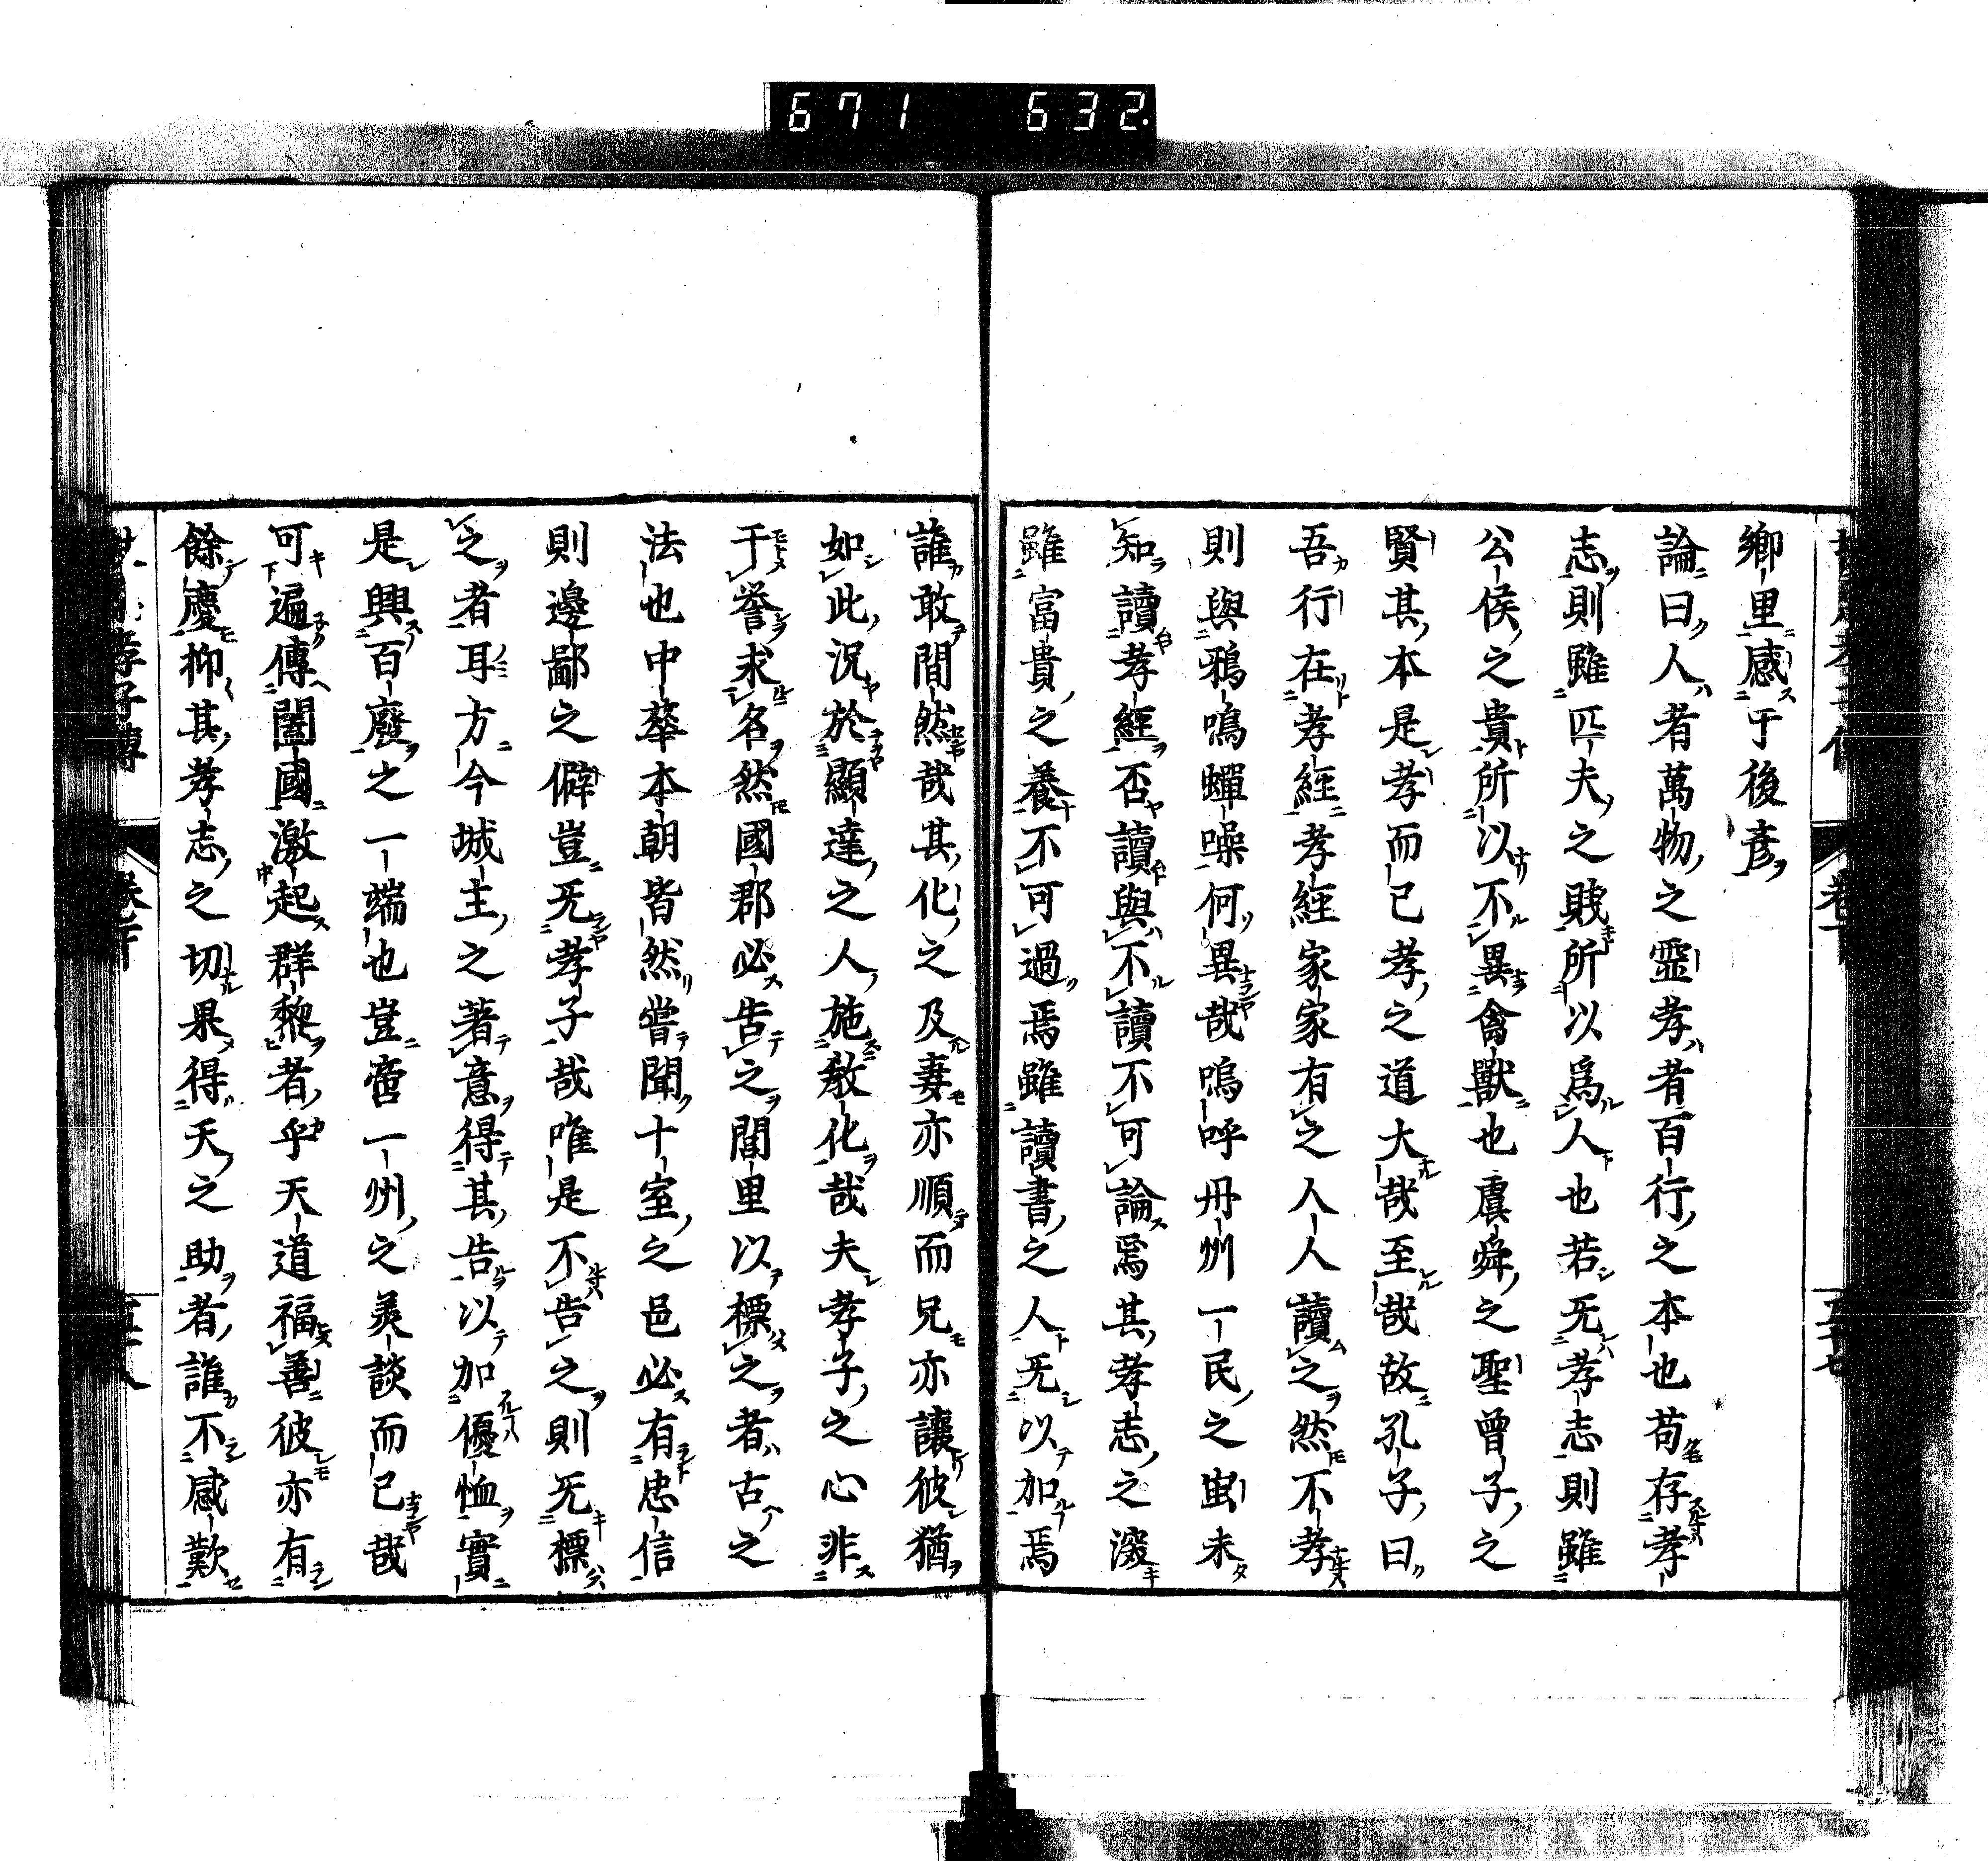 671 632.
鄉里感于後彥
論曰人者萬物之靈孝者百行之本也苟存孝
志則雖匹夫之賤所以爲人也若无孝志則雖
公侯之貴所以不異禽獸也虞舜之聖曾子之
賢其本是孝而已孝之道大哉至哉故孔子曰
吾行在孝經孝經家家有之人人讀之然不孝
則與鴉鳴蟬噪何異哉嗚呼丹州一民之蚩未
知讀孝經否讀與不讀不可論焉其孝志之深
雖富貴之養不可過焉雖讀書之人无以加焉
誰敢間然哉其化之及妻亦順而兄亦讓彼猶
如此況於顯達之人施教化哉夫孝子之心非
于誉求名然國郡必告之閭里以標之者古之
法也中華本朝皆然嘗聞十室之邑必有忠信
則邊鄙之僻豈无孝子哉唯是不告之則无標
之者耳方今城主之著意得其告以加優恤實
是興百廢之一端也豈啻一州之美談而已哉
可遍傳闔國激起群黎者乎天道福善彼亦有
餘慶抑其孝志之切果得天之助者誰不感歎
孝子傳